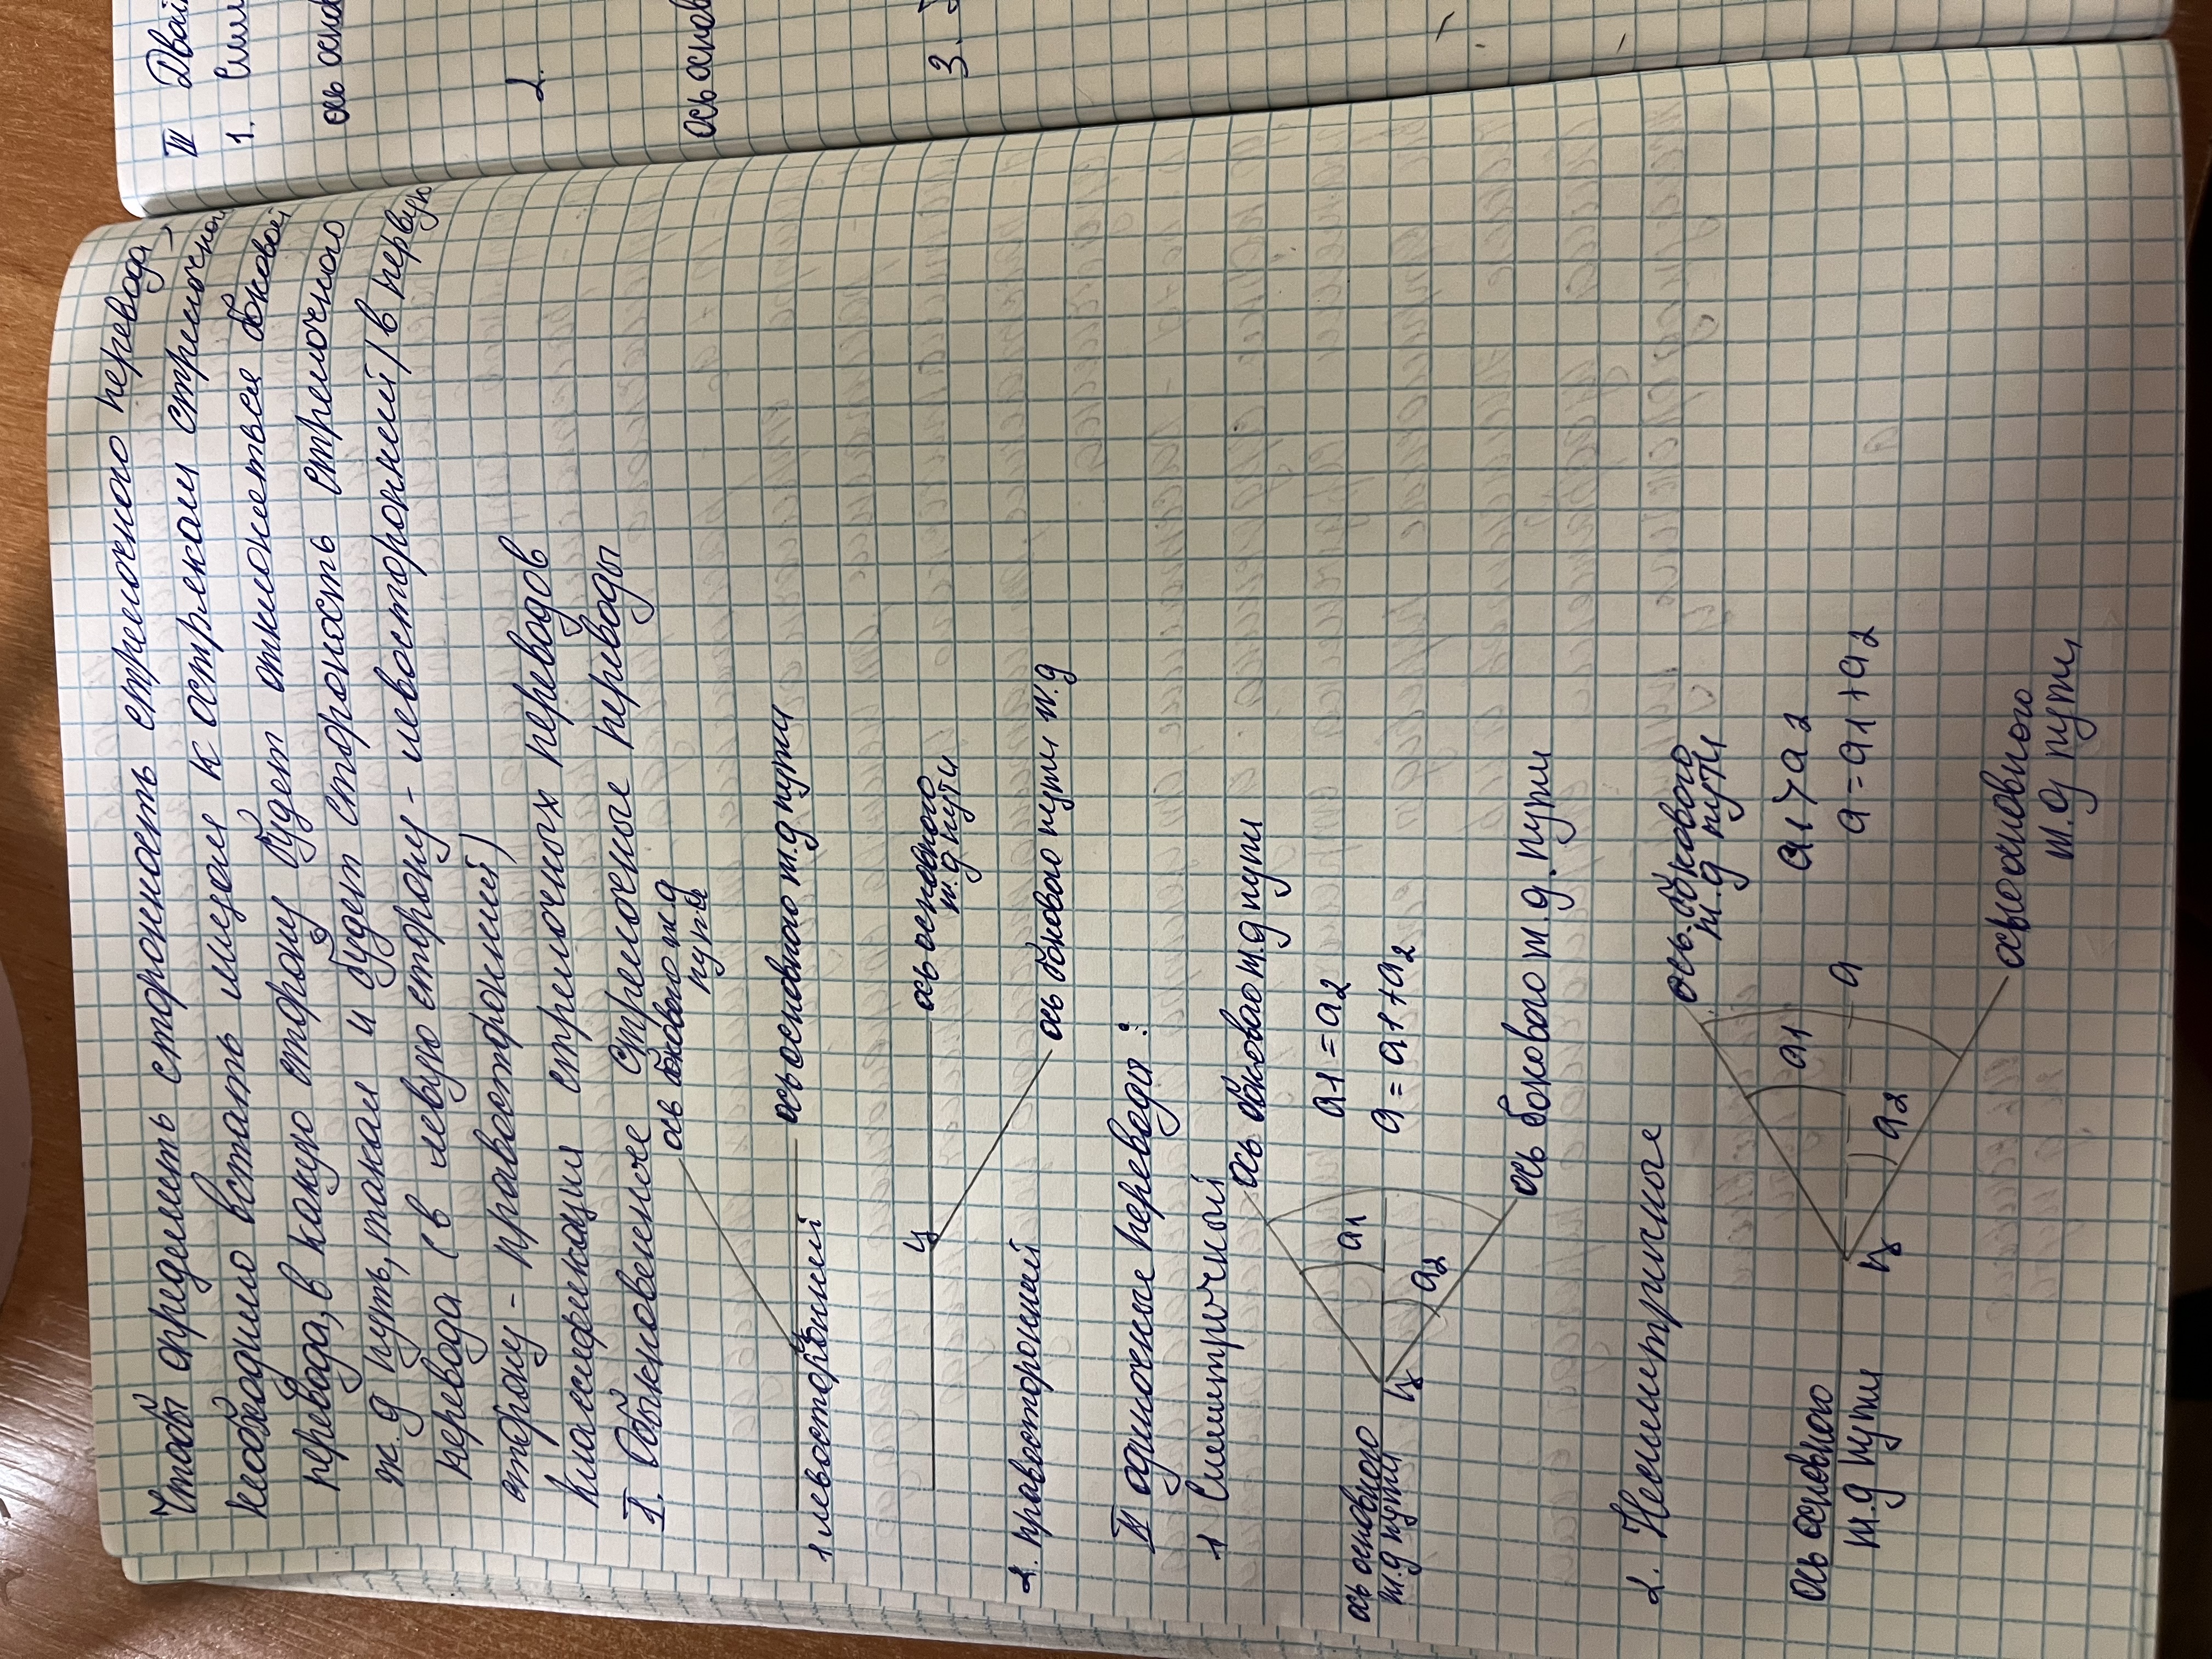 Чтобы определить сторонность стрелочного перевода,
необходимо встать лицом к острякам стрелочного
перевода, в какую сторону будет отклоняться боковой
ж.д путь, такай и будет стороность стрелочного
перевода (в левую сторону - левосторонний, в первую
сторону - правосторонний)
Классификация стрелочных переводов
I. Обыкновенные стрелочные переводы
ось бокового ж д
пути
ось основного ж.д пути
1 левосторонний
ц
ось основного
ж.д пути
ось бокового пути ж.д
2. правосторонний
II одиночные перевода:
1 Симметричный
ось бокового ж.д пути
a1 = a2
a = a1 + a2
a1
a2
ц
ось основного
ж.д пути
ось бокового ж.д. пути
2. Несиметрисные
ось бокового
ж.д пути
a1 > a2
a = a1 + a2
a1
a
a2
ц
ось основного
ж.д пути
осьосновного
ж.д пути
III Двой
1. Сим
ось основ
2.
ось основ
3.